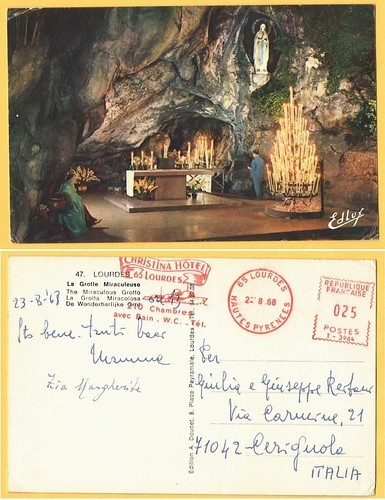 Edlux
47. LOURDES
La Grotte Miraculeuse
The Miraculous Grotto
La Grotta Miracolosa
De Wonderbarlijke Grot
CHRISTINA HÔTEL
65 LOURDES
210 Chambres
avec Bain - W.C. - Tél.
65 LOURDES
8.68
HAUTES PYRENEES
REPUBLIQUE
FRANÇAISE
025
POSTES
23-8-'68
Sto bene. Tanti baci
Mamma
Zia Margherita
Edition A. Doucet, 8, Place Peyramale, Lourdes
Per
Giulia e Giuseppe
Via Carmine, 21
71042 - Cerignola
ITALIA